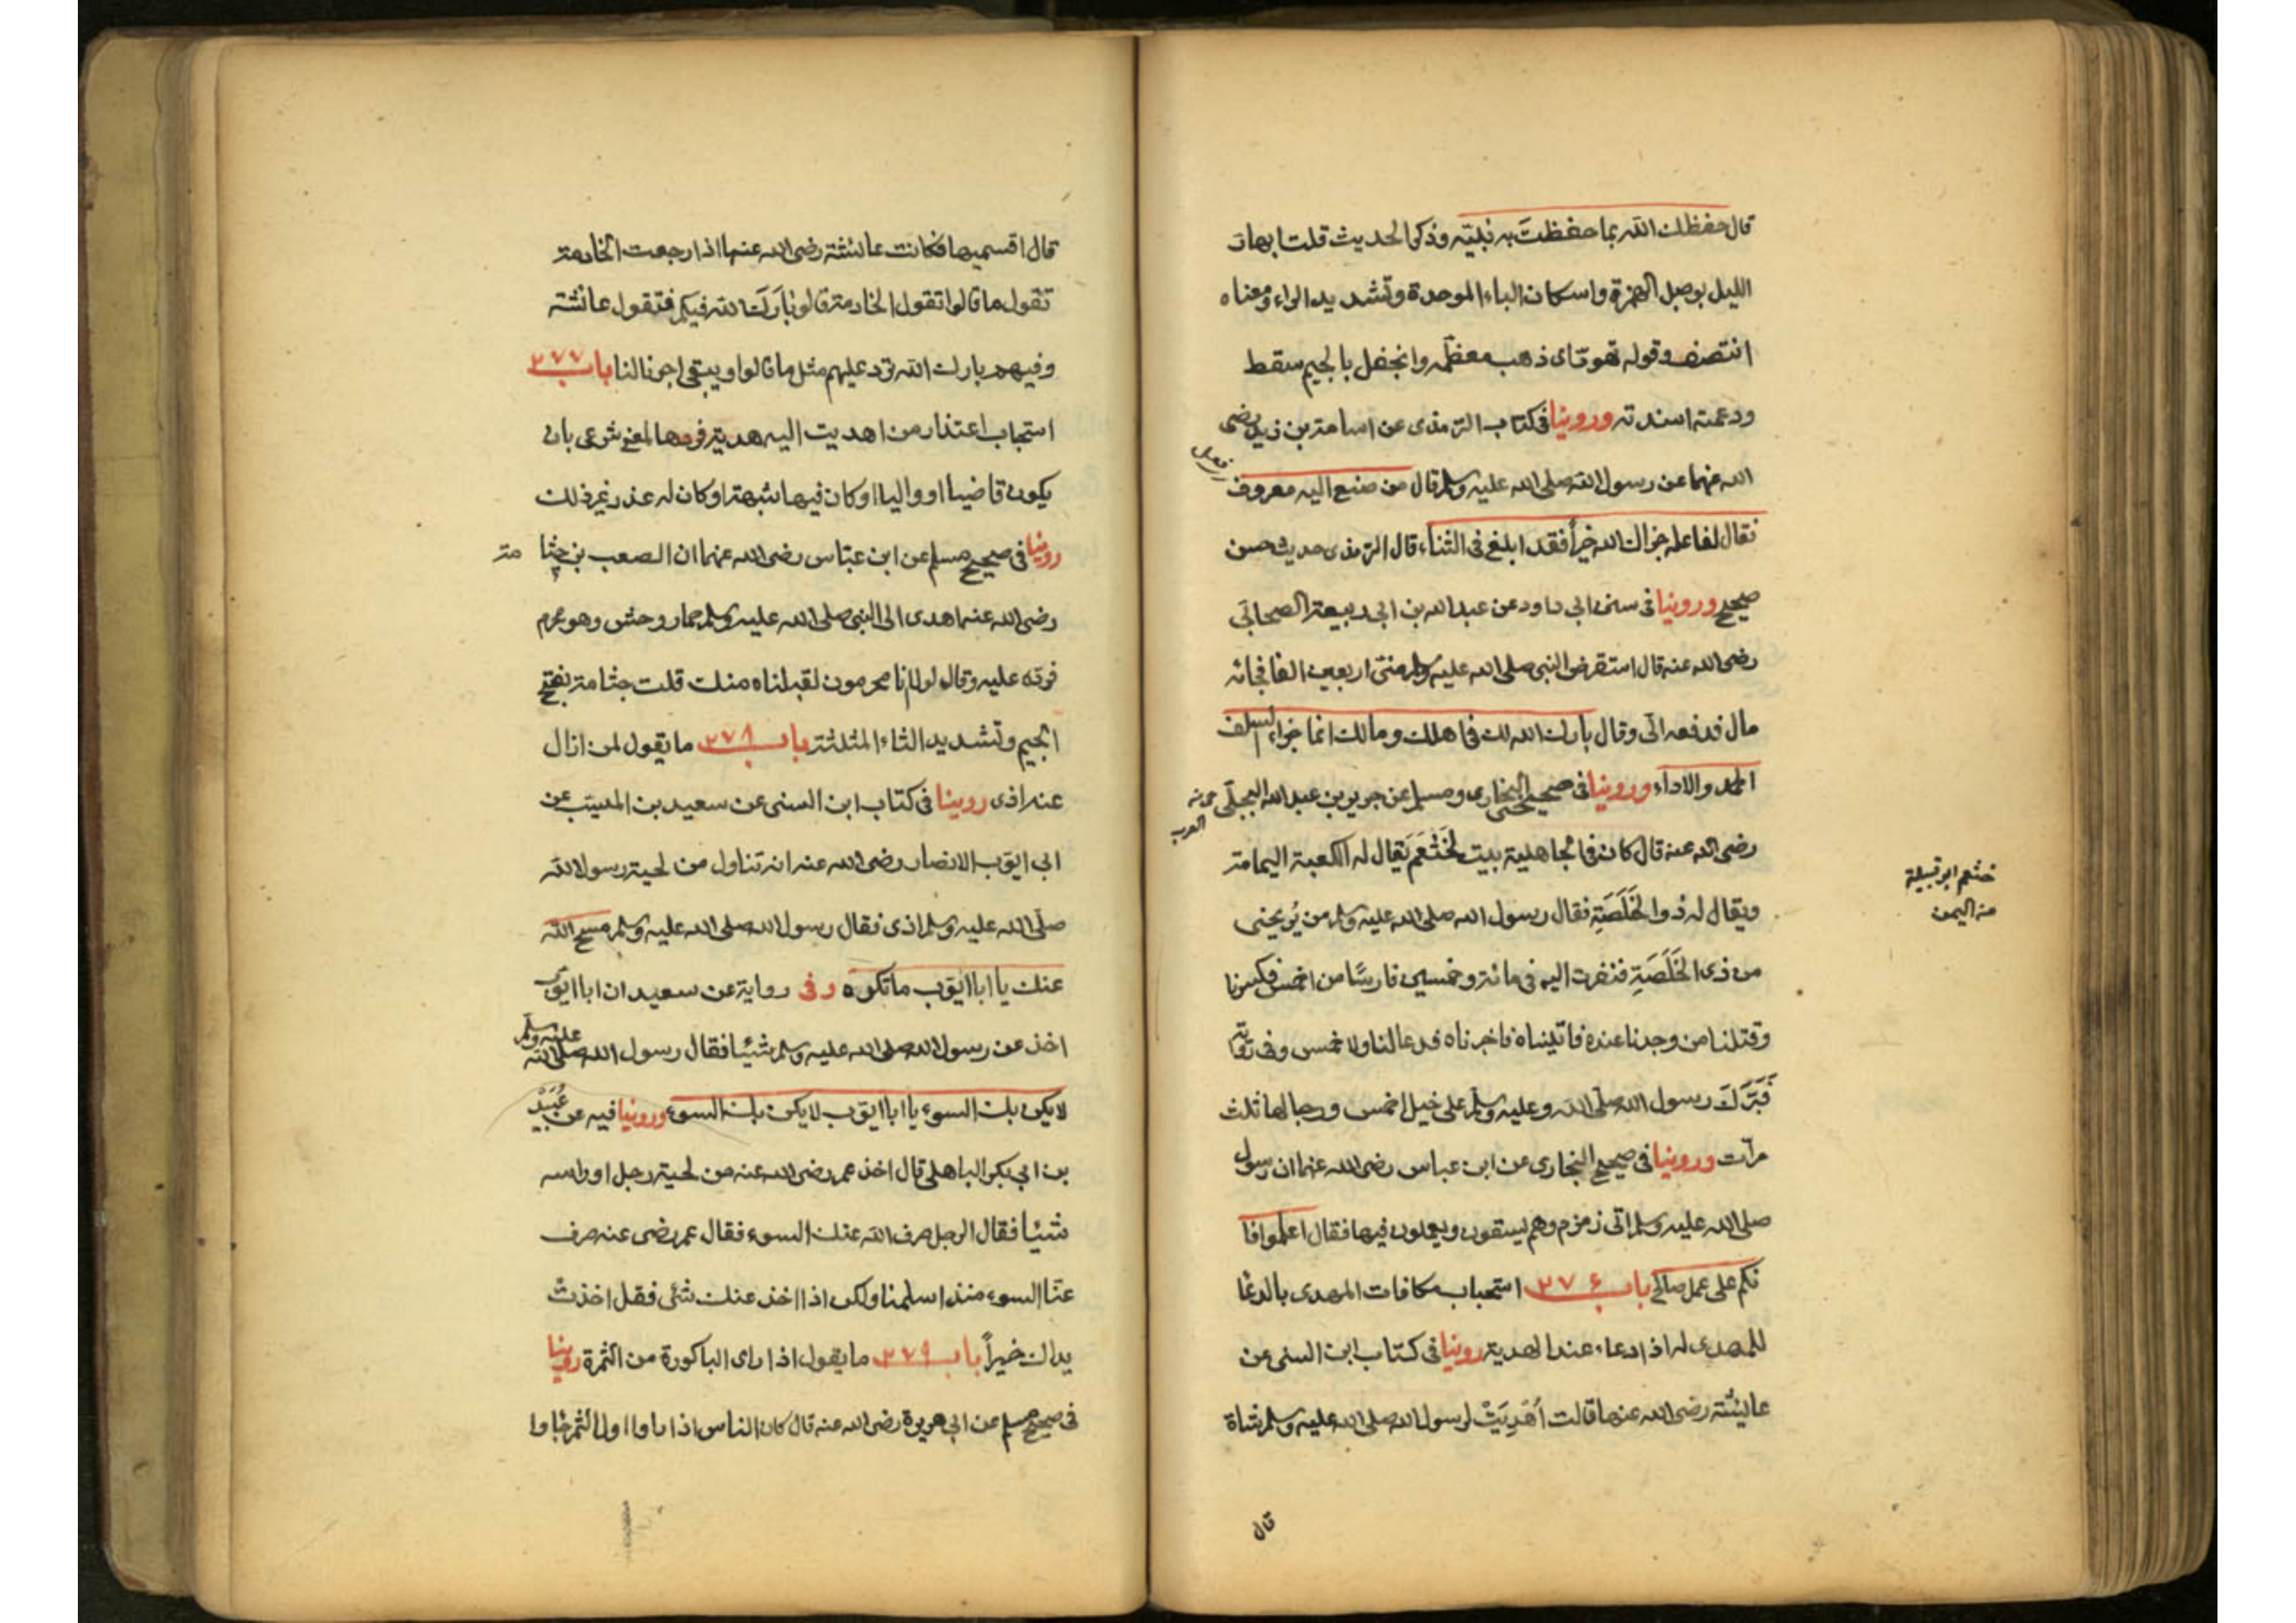 قال حفظك الله بما حفظتَ به نبيّه وذكر الحديث قلت ابهارّ
الليل بوصل الهمزة واسكان الباء الموحدة وتشديد الراء ومعناه
انتصف وقوله تهوّر اى ذهب معظمه وانجفل بالجيم سقط
ودعمته اسندته وروينا فى كتاب الترمذى عن اسامة بن زيد رضى
الله عنهما عن رسول الله صلى الله عليه وسلم قال من صنع اليه معروف
فقال لفاعله جزاك الله خيراً فقد ابلغ فى الثناء قال الترمذى حديث حسن
صحيح وروينا فى سنن ابى داود عن عبد الله بن ابى ربيعة الصحابّى
رضى الله عنه قال استقرض النبى صلى الله عليه وسلم منّى اربعين الفا فجائه
مال فدفعه الىّ وقال بارك الله لك فى اهلك ومالك انما جزاء السلف
الحمد والاداء وروينا فى صحيحى البخارى ومسلم عن جرير بن عبد الله البجلّى
رضى الله عنه قال كان فى الجاهلية بيت لخَثْعَم يَقال له الكعبة اليمامة
ويقال له ذوا الخَلَصَةِ فقال رسول الله صلى الله عليه وسلم من يُريحنى
من ذى الخَلَصَةِ فنفرت اليه فى مائة وخمسين فارسًا من احمس فكسرنا
وقتلنا من وجدنا عنده فاتيناه فاخبرناه فدعا لنا ولاحمس وفى رواية
فَبَرَّكَ رسول الله صلّى الله وعليه وسلّم على خيل احمس ورجالها ثلث
مرّات وروينا فى صحيح البخارى عن ابن عباس رضى الله عنهما ان رسول
صلى الله عليه وسلم اتى زمزم وهم يسقون ويعملون فيها فقال اعملوا فا
نكم على عمل صالح باب ٢٧٦ استحباب مكافات المهدى بالدعا
للمهدى له اذا دعاء عند الهدية روينا فى كتاب ابن السنى عن
عايئشة رضى الله عنها قالت اُهْدِيَتْ لرسول الله صلى الله عليه وسلم شاة
خثعم ابو قبيلة
من اليمن
قال
قال اقسميها فكانت عائشة رضى الله عنها اذا رجعت الخادمة
تقول ما قالوا تقول الخادمة قالو بَارَكَ الله فيكم فتقول عائشة
وفيهم بارك الله نرّد عليهم مثل ما قالوا ويبقى اجرنا لنا باب ٢٧٧
استحباب اعتذار من اهديت اليه هدية فردها لمعنى شرعى بان
يكون قاضيا او واليا او كان فيها شبهة او كان له عذر غير ذلك
روينا فى صحيح مسلم عن ابن عبّاس رضى الله عنهما ان الصعب بن جثا مة
رضى الله عنه اهدى الى النبى صلى الله عليه وسلم حمار وحش وهو محرم
فردّه عليه وقال لولا انا محرمون لقبلناه منك قلت جثامة بفتح
الجيم وتشديد الثاء المثلثة باب ٢٧٨ ما يقول لمن ازال
عنه اذى روينا فى كتاب ابن السنى عن سعيد بن المسيّب عن
ابى ايوّب الانصار رضى الله عنه انه تناول من لحية رسول الله
صلّى الله عليه وسلم اذى فقال رسول الله صلى الله عليه وسلم مسح الله
عنك يا ابا ايوّب ما تكره وفى رواية عن سعيد ان ابا ايوّب
اخذ عن رسول الله صلى الله عليه وسلم شيئا فقال رسول الله صلى الله عليه وسلم
لا يكن بك السوء يا ابا ايوّب لا يكن بك السوء وروينا فيه عن
بن ابى بكر الباهلى قال اخذ عمر رضى الله عنه من لحية رجل او راسه
شيئا فقال الرجل صرف الله عنك السوء فقال عمر رضى عنه صرف
عنّا السوء منذ اسلمنا ولكن اذا اخذ عنك شئى فقل اخذت
يداك خيراً باب ٢٧٩ ما يقول اذا راى الباكورة من الثمرة روينا
فى صحيح مسلم عن ابى هريرة رضى الله عنه قال كان الناس اذا راوا اول الثمر جاوا